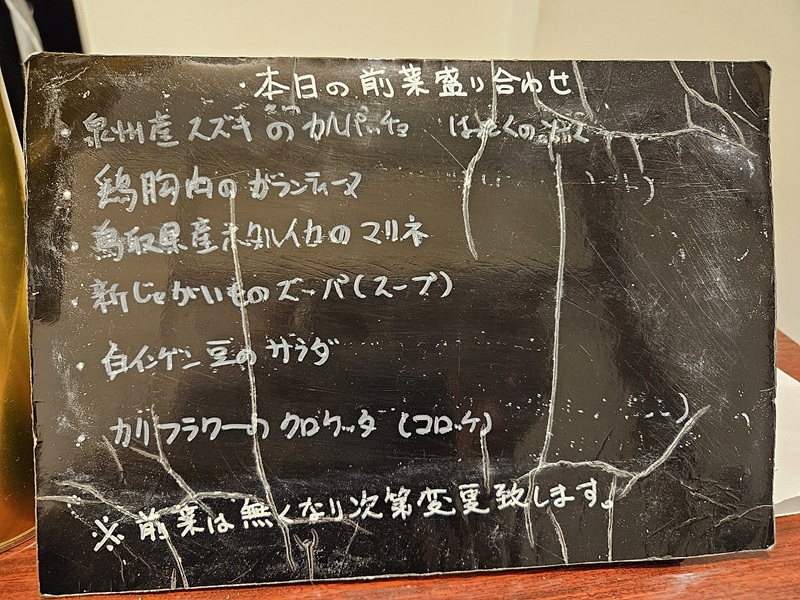 ・本日の前菜盛り合わせ
・泉州産スズキのカルパッチョ はっさくのソース
・鶏胸肉のガランティーヌ
・鳥取県産ホタルイカのマリネ
・新じゃがいものズーパ(スープ)
・白インゲン豆のサラダ
・カリフラワーのクロケッタ(コロッケ)
※前菜は無くなり次第変更致します。